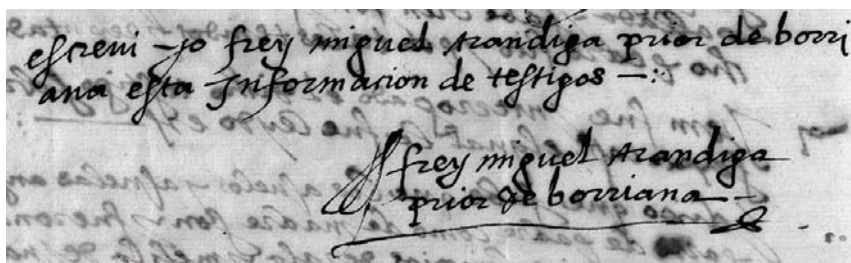 escreui yo frey miguel Arandiga prior de borri
ana esta Informacion de testigos
frey miguel Arandiga
prior de borriana